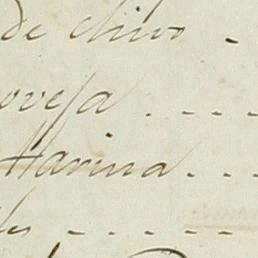 de chivo -
oveja ....
Harina ....